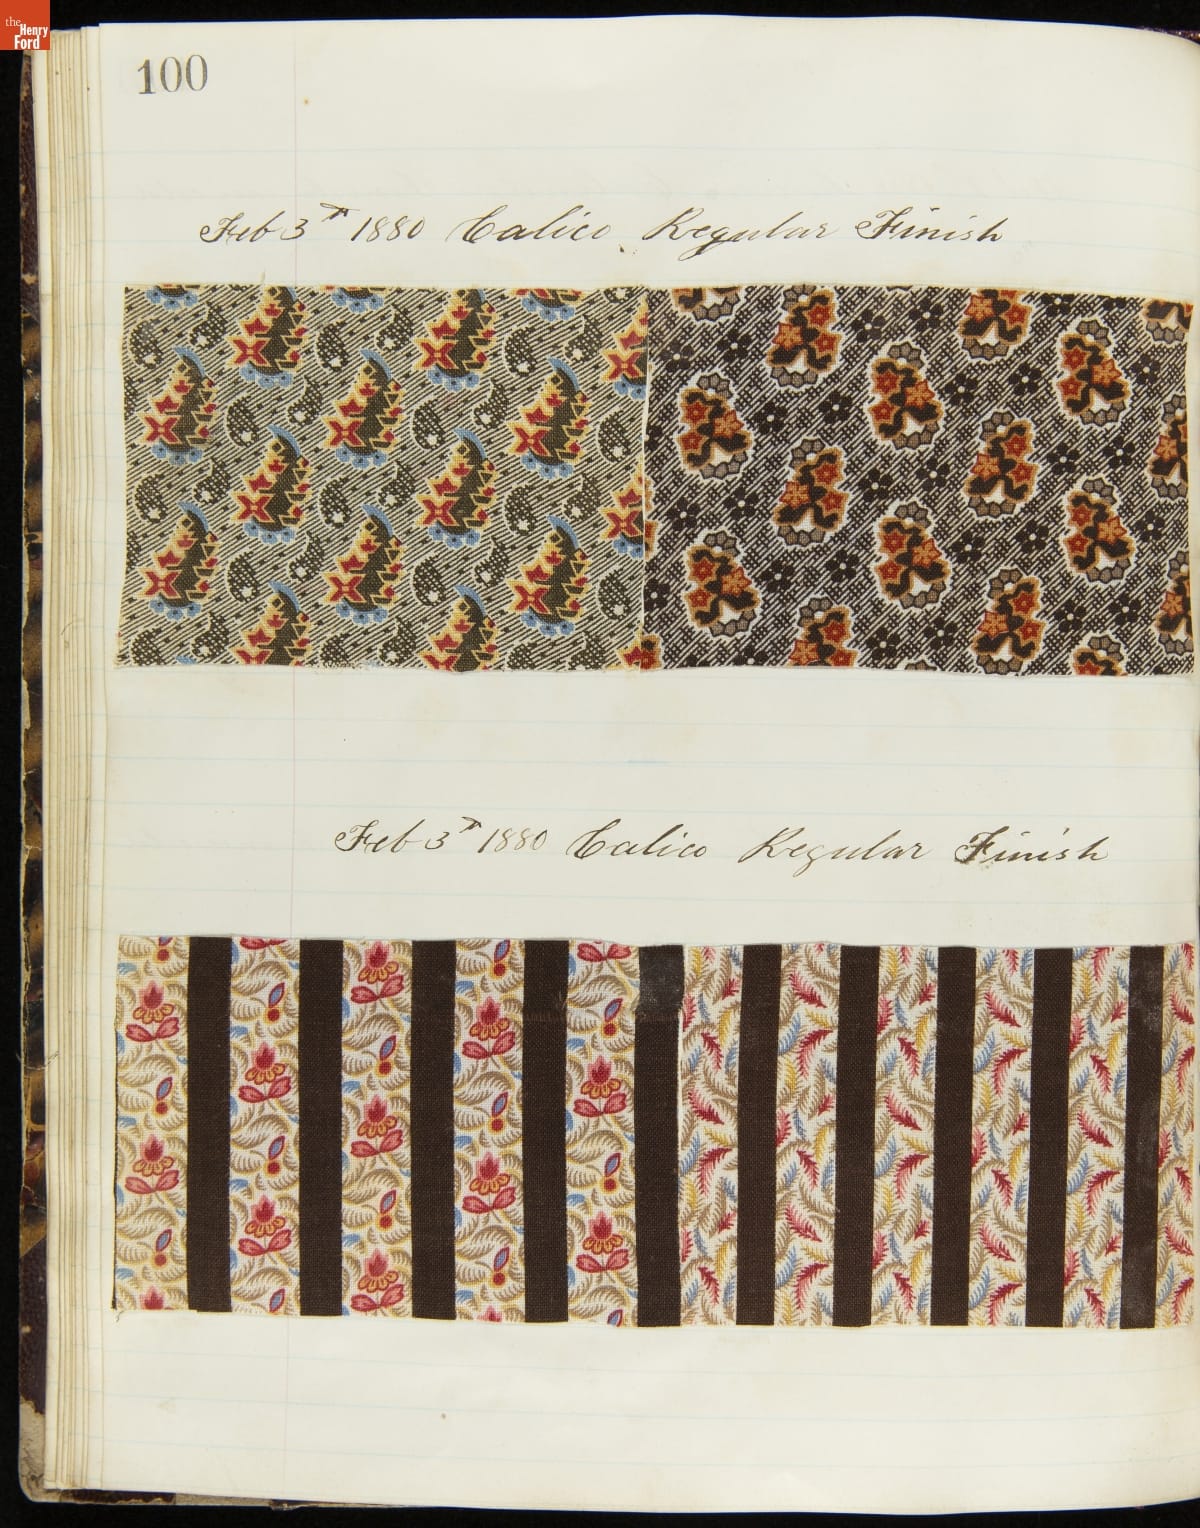 the
Henry
Ford
100
Feb 3th 1880 Calico Regular Finish
Feb 3th 1880 Calico Regular Finish